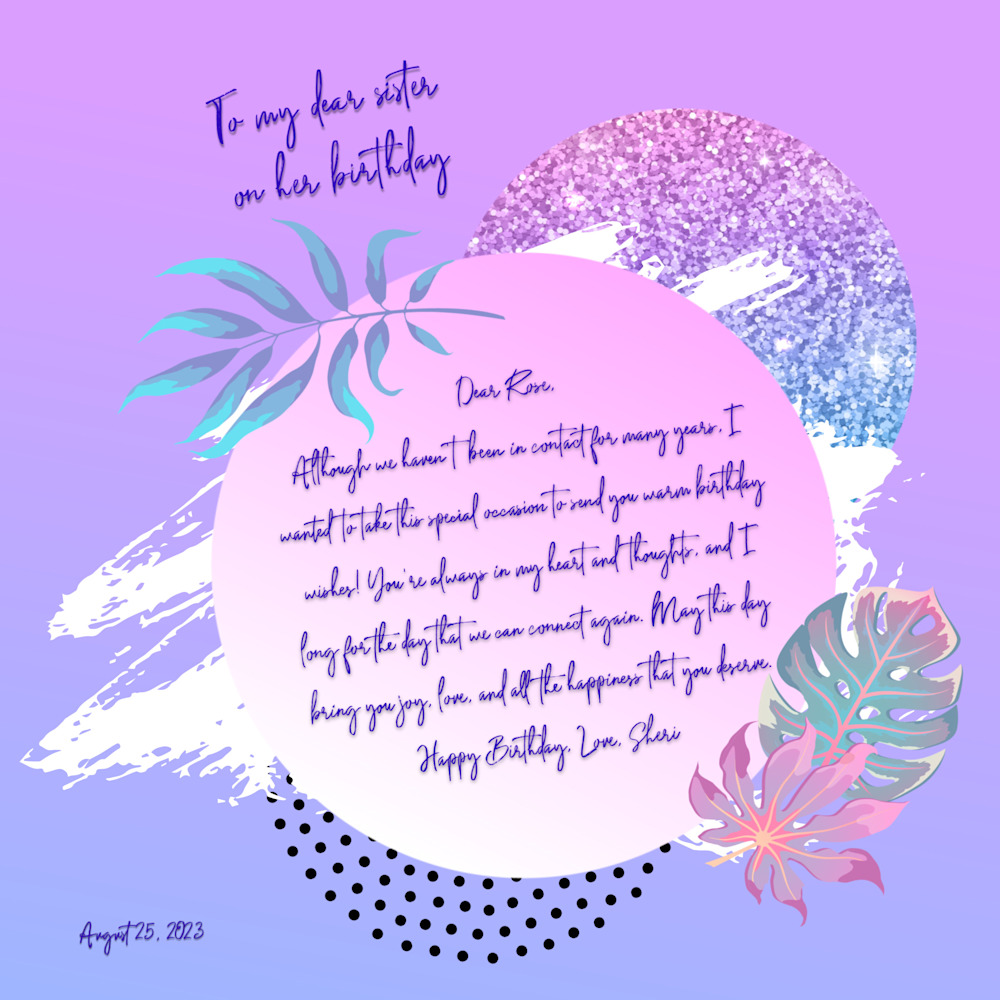 To my dear sister
on her birthday
Dear Rose,
Although we haven't been in contact for many years, I
wanted to take this special occasion to send you warm birthday
wishes! You're always in my heart and thoughts, and I
long for the day that we can connect again. May this day
bring you joy, love, and all the happiness that you deserve.
Happy Birthday, Love, Sheri
August 25, 2023